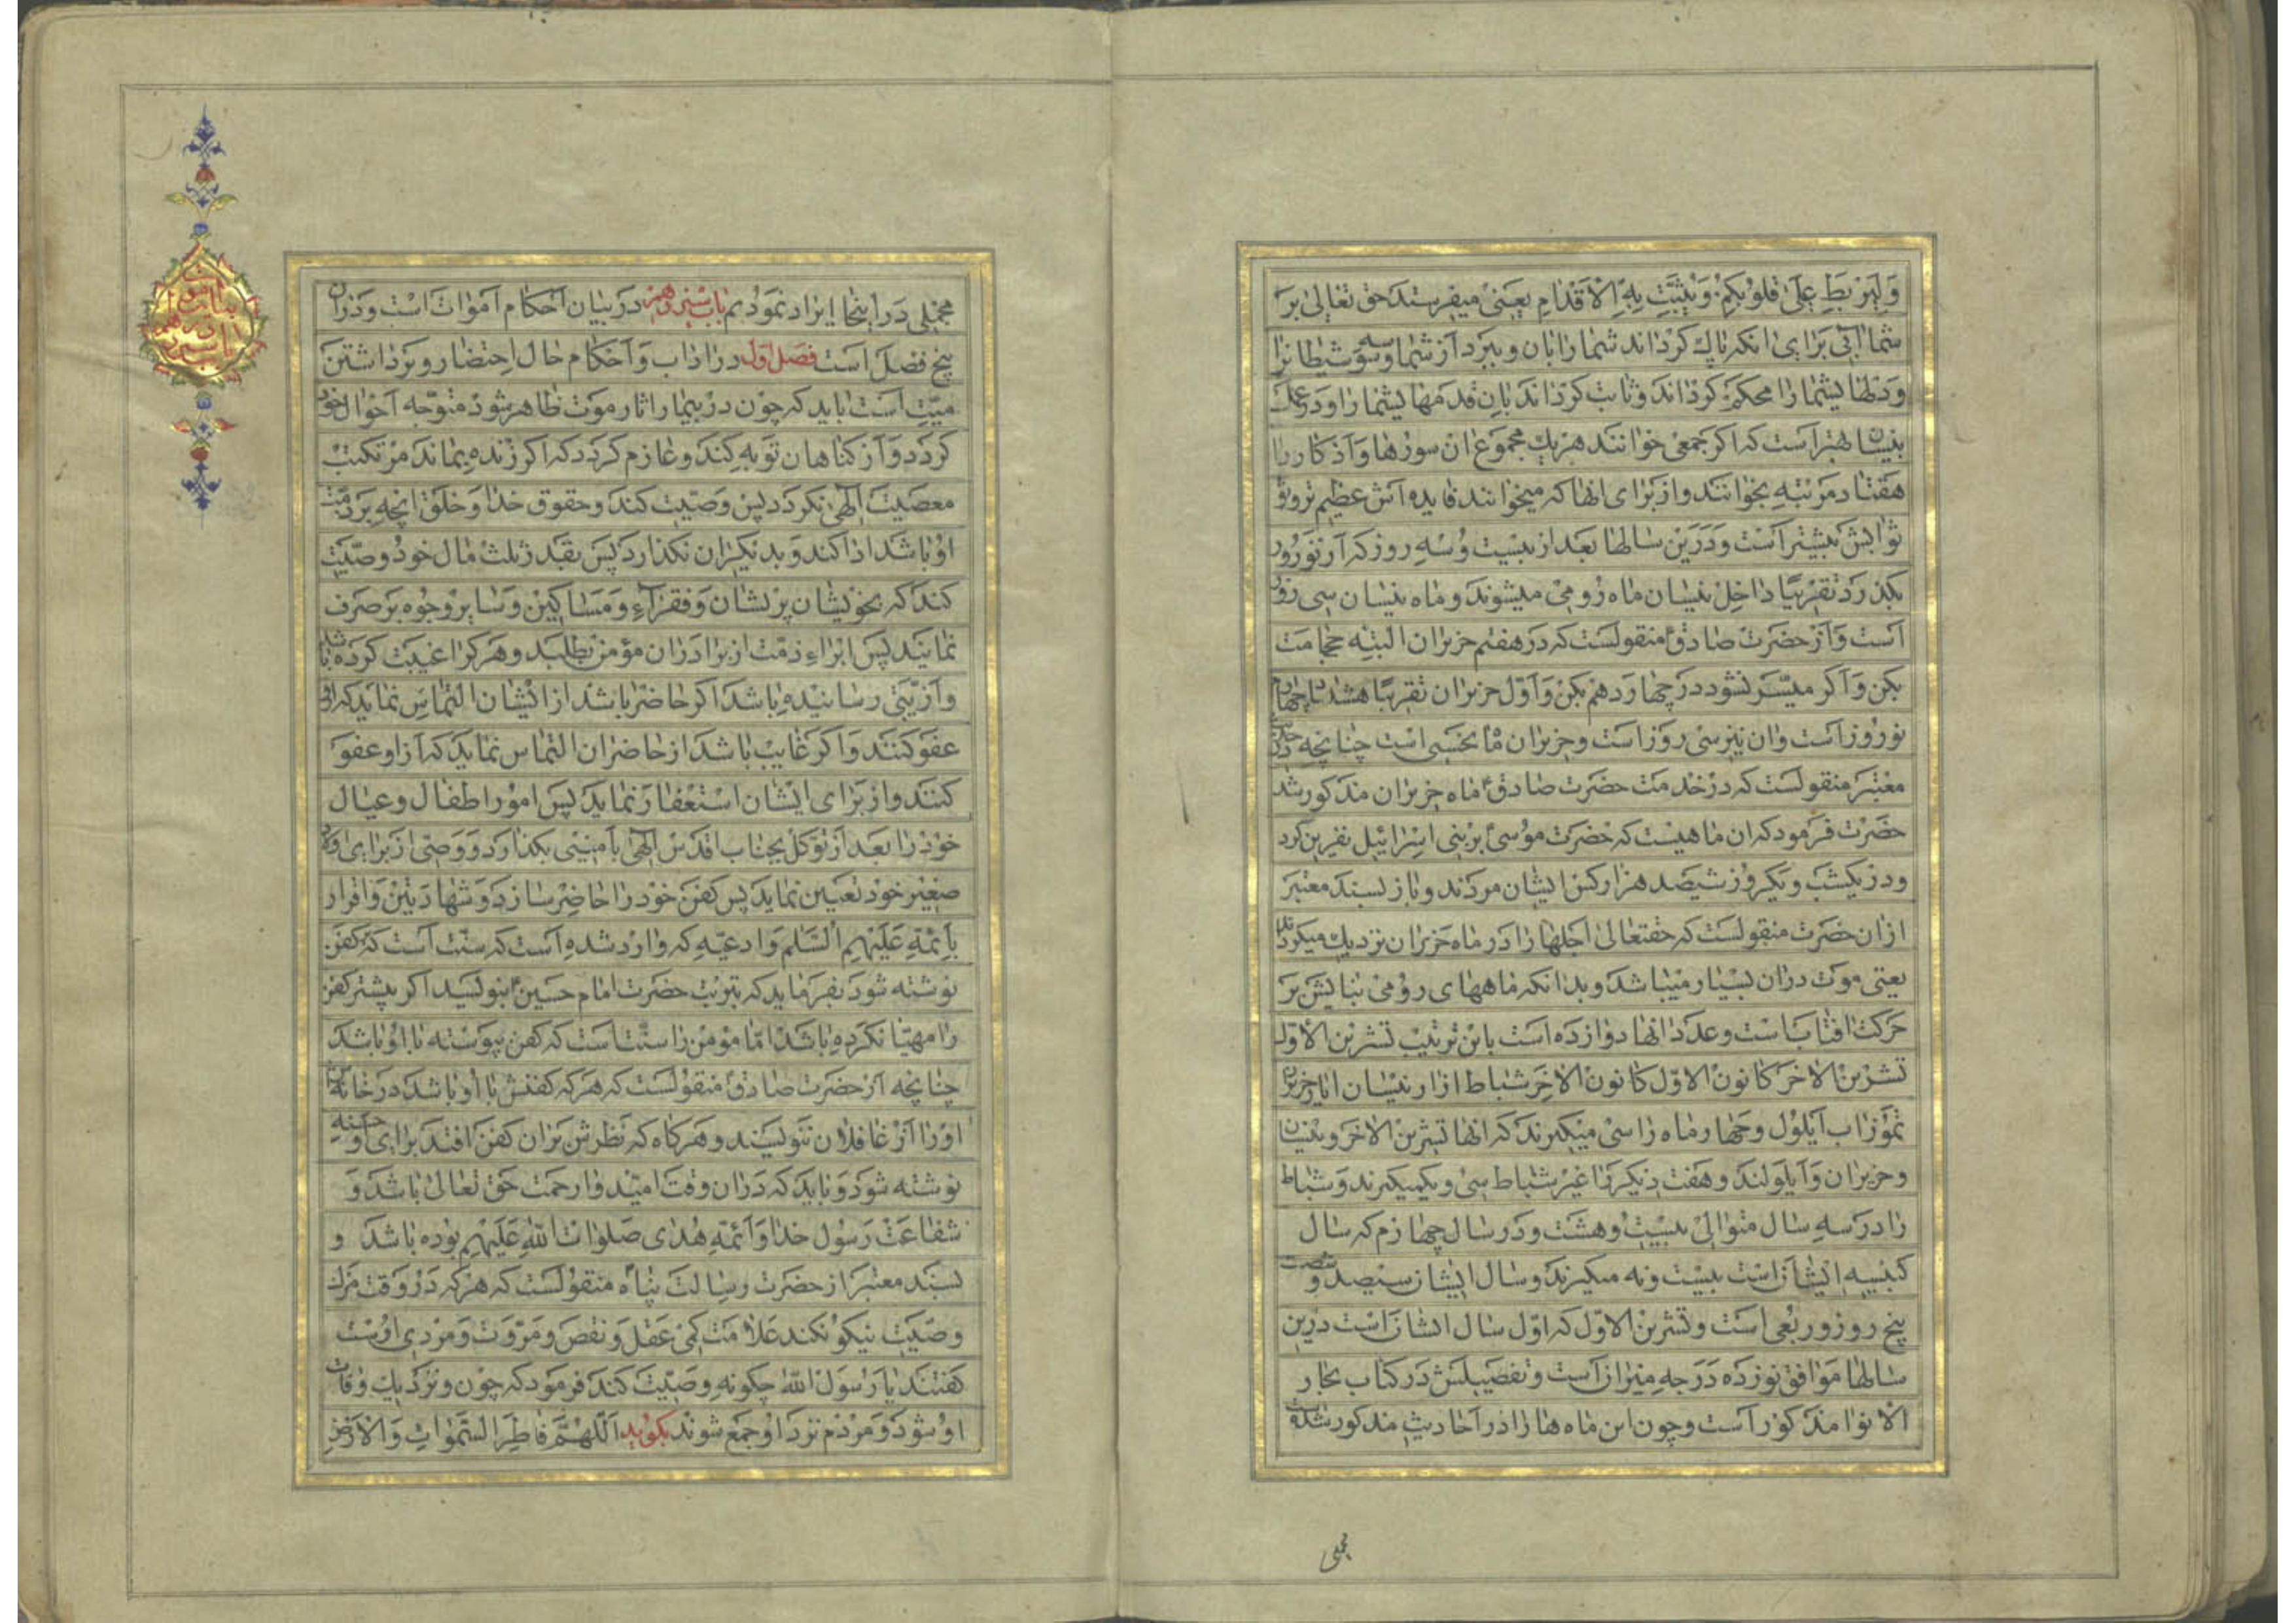 وَلِيَرْبِطَ عَلىٰ قُلُوبِكُمْ وَيُثَبِّتَ بِهِ الْاَقْدٰامِ یعنی میفرستد حق تعالی بر
شما آبی برای انکه پاک کرداند شما را بان و ببرد از شما وسوسه شیطانرا
و دلهایشما را محکم کرداند و ثابت کرداند بان قدمهایشما را و در عمل
نیسان بهتر است که اکر جمعی خوانند هر یک مجموع ان سورها و اذکار را
هفتاد مرتبه بخوانند و از برای انها که میخوانند فایده اش عظیم تر و
ثوابش بیشتر است و درین سالها بعد از بیست و سه روز که از نوروز
بکذرد تقریبا داخل نیسان ماه رومی میشوند و ماه نیسان سی روز
است و از حضرت صادق منقولست که در هفتم حزیران البته حجامت
بکن و اکر میسّر نشود در چهاردهم بکن و اوّل حزیران تقریبا هشتاد و چهارم
نوروز است و ان نیز سی روز است و حزیران ماه نحسی است چنانچه در حدیث
معتبر منقولست که در خدمت حضرت صادق ماه حزیران مذکور شد
حضرت فرمود که ان ماهیست که حضرت موسی بر بنی اسرائیل نفرین کرد
و در یکشب و یکروز سیصد هزار کس ایشان مردند و باز بسند معتبر
از ان حضرت منقولست که حقتعالی اجلها را در ماه حزیران نزدیک میکرداند
یعنی موت دران بسیار میباشد و بدانکه ماههای رومی بنایش بر
حرکت افتابست و عدد انها دوازده است باین ترتیب تشرین الاوّل
تشرین الاخر کانون الاوّل کانون الاخر شباط اذار نیسان ایار حزیران
تموز اب ایلول و چهار ماه را سی میکیرند که انها تشرین الاخر و نیسان
و حزیران و ایلولند و هفت دیکر را غیر شباط سی و یکمیکیرند و شباط
را در سه سال متوالی بیست و هشت و در سال چهارم که سال
کبیسه ایشانراست بیست و نه میکیرند و سال ایشان سیصد و شصت و
پنج روز و ربعی است و تشرین الاوّل که اوّل سال ایشان است درین
سالها موافق نوزده درجه میزان است و تفصیلش در کتاب بحار
الانوار مذکور است و چون این ماه ها را در احادیث مذکور شده است
مجملی
مجملی در اینجا ایراد نمودیم باب سیزدهم در بیان احکام اموات است و دران
پنج فصل است فصل اول در اداب و احکام حال احتضار و برداشتن
میّت است باید که چون در بیمار اثار موت ظاهر شود متوجه احوال خود
کردد و از کناهان توبه کند و عازم کردد که اکر زنده بماند مرتکب
معصیت الهی نکردد پس وصیت کند و حقوق خدا و خلق انچه بر ذمت
او باشد ادا کند و بدیکران نکذارد پس بقدر ثلث مال خود وصیت
کند که بخویشان پریشان و فقراء و مساکین و سایر وجوه بر صرف
نمایند پس ابراء ذمّت از برادران مؤمن بطلبد و هر کرا غیبت کرده باشد
و اذیّتی رسانیده باشد اکر حاضر باشد از ایشان التماس نماید که او را
عفو کنند و اکر غایب باشد از حاضران التماس نماید که از او عفو
کنند و از برای ایشان استغفار نماید پس امور اطفال و عیال
خود را بعد از توکل بجناب اقدس الهی بامینی بکذارد و وصی از برای اولاد
صغیر خود تعیین نماید پس کفن خود را حاضر سازد و شهادتین و اقرار
بأئمّة علیهم السّلم و ادعیه که وارد شده است که سنّت است که بر کفن
نوشته شود بفرماید که بتربت حضرت امام حسین بنویسید اکر پیشتر کفن
را مهیّا نکرده باشد امّا مؤمن را سنّت است که کفن پیوسته با او باشد
چنانچه از حضرت صادق منقولست که هر که کفنش با او باشد در خانه اش
او را از غافلان ننویسند و هر کاه که نظرش بران کفن افتد برای او حسنه
نوشته شود و باید که دران وقت امیدوار رحمت حق تعالی باشد و
شفاعت رسول خدا و ائمّه هدی صلوات الله علیهم بوده باشد و
بسند معتبر از حضرت رسالت پناه منقولست که هر که در وقت مرک
وصیّت نیکو نکند علامت کمی عقل و نقص و مروّت و مردی اوست
کفتند یا رسول الله چکونه وصیّت کند فرمود که چون و نزدیک وفات
او شود و مردم نزد او جمع شوند بکوید اَللّهُمَّ فاطِرَ السَّمٰواتِ وَالْاَرْضِ